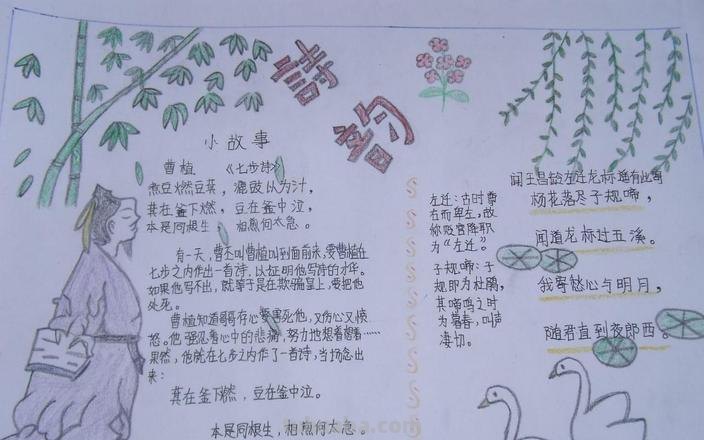 诗韵
小故事
曹植 《七步诗》
煮豆燃豆萁，漉豉以为汁，
萁在釜下燃，豆在釜中泣，
本是同根生，相煎何太急。
有一天，曹丕叫曹植叫到面前来，要曹植在
七步之内作出一首诗，以证明他写诗的才华。
如果他写不出，就等于是在欺骗皇上，要把他
处死。
曹植知道哥哥有心要害死他，又伤心又愤
怒。他强忍着心中的悲痛，努力地想着想着……
果然，他就在七步之内作了一首诗，当场念出
来：
萁在釜下燃，豆在釜中泣。
本是同根生，相煎何太急。
左迁：古时尊
右而卑左，故
称贬官降职
为“左迁”。
子规啼：子
规即为杜鹃，
其啼鸣之时
为暮春，叫声
凄切。
闻王昌龄左迁龙标遥有此寄
杨花落尽子规啼，
闻道龙标过五溪。
我寄愁心与明月，
随君直到夜郎西。